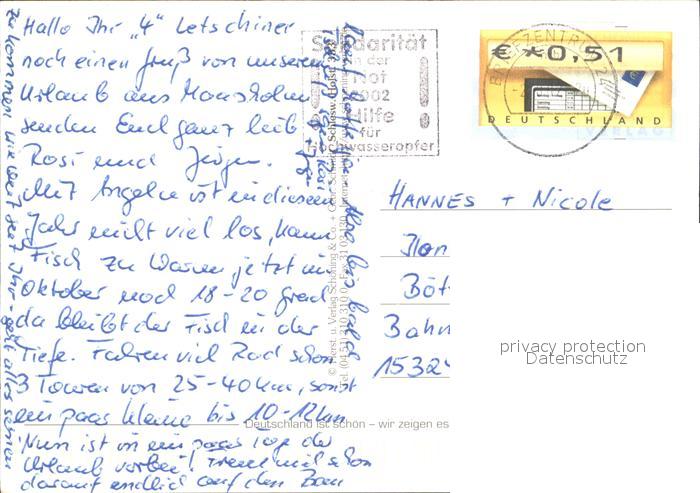 Hallo Ihr "4" Letschiner
noch einen Gruß von unserem
Urlaub aus
senden Euch ganz lieb
Rosi und Jürgen.
Mit Angeln ist in diesem
Jahr nicht viel los, kaum
Fisch zu Waren jetzt im
Oktober noch 18-20 grad
da bleibt der Fisch in der
Tiefe. Fahren viel Rad schon
3 Touren von 25-40 km, sonst
ein paar kleine bis 10-12 km
Nun ist in ein paar Tage der
Urlaub vorbei!
darauf endlich auf den Bau
zu kommen wie weit seit Ihr - geht alles seinen
Solidarität
in der
Not
2002
Hilfe
für
Hochwasseropfer
BRIEFZENTRUM 24
€ *0,51
DEUTSCHLAND
VERLAG
HANNES + Nicole
Böt
Bahn
15324
privacy protection
Datenschutz
Deutschland ist schön – wir zeigen es